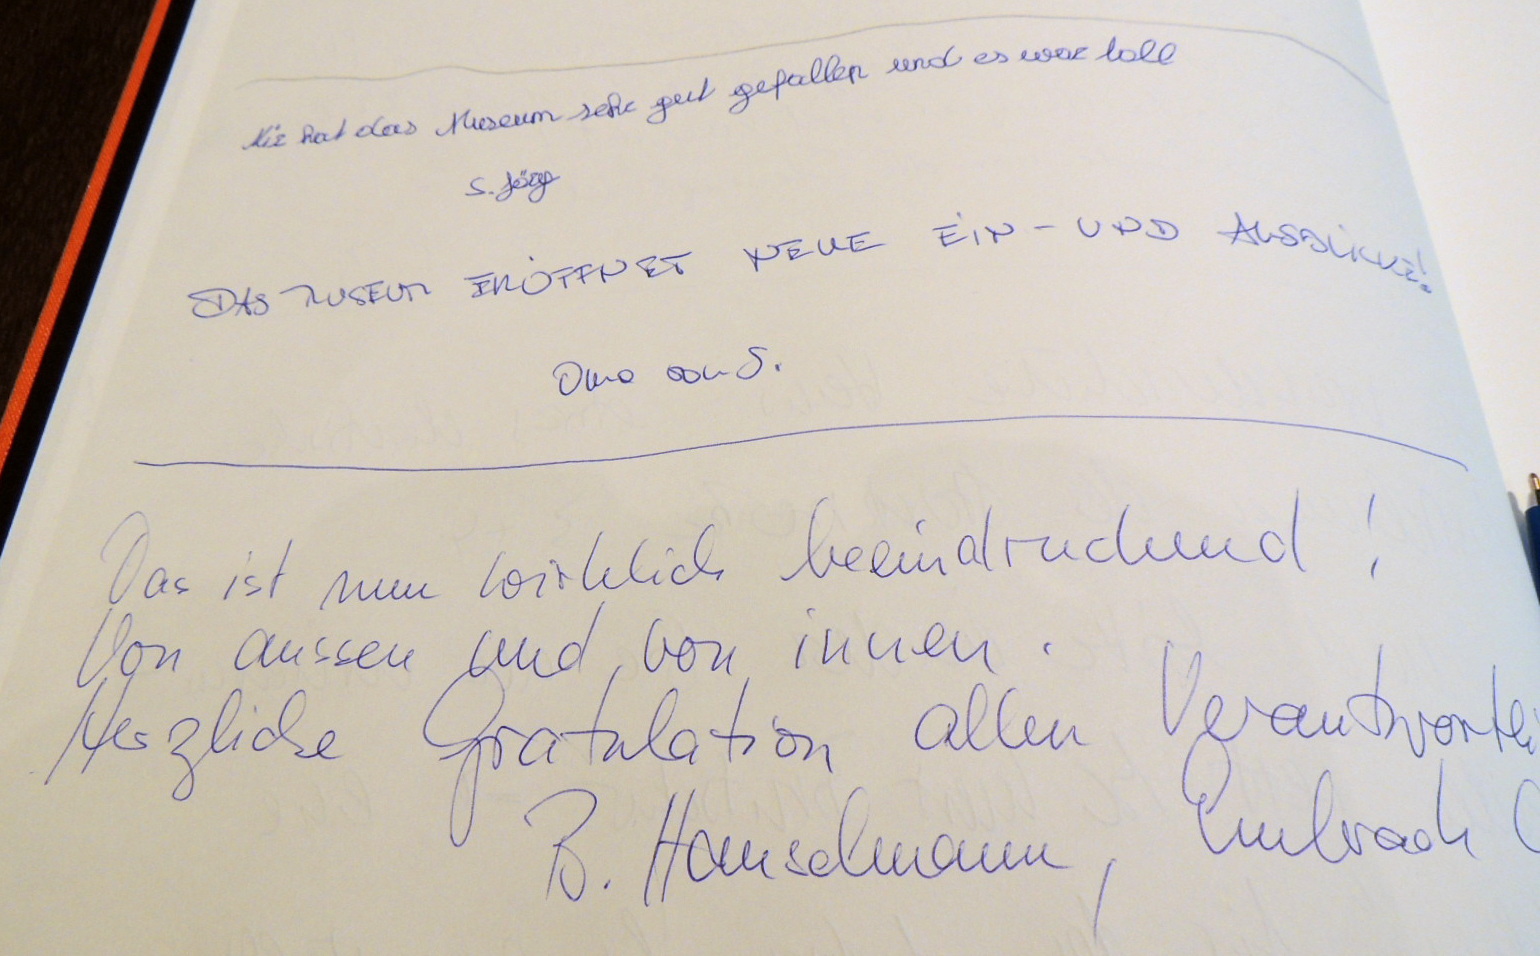 Mir hat das Museum sehr gut gefallen und es war toll
S. Jörg
DAS MUSEUM ERÖFFNET NEUE EIN- UND AUSBLICKE!
Oma von S.
Das ist nun wirklich beeindruckend!
Von aussen und von innen.
Herzliche Gratulation allen Verantworte
B. Hanselmann, Embrach